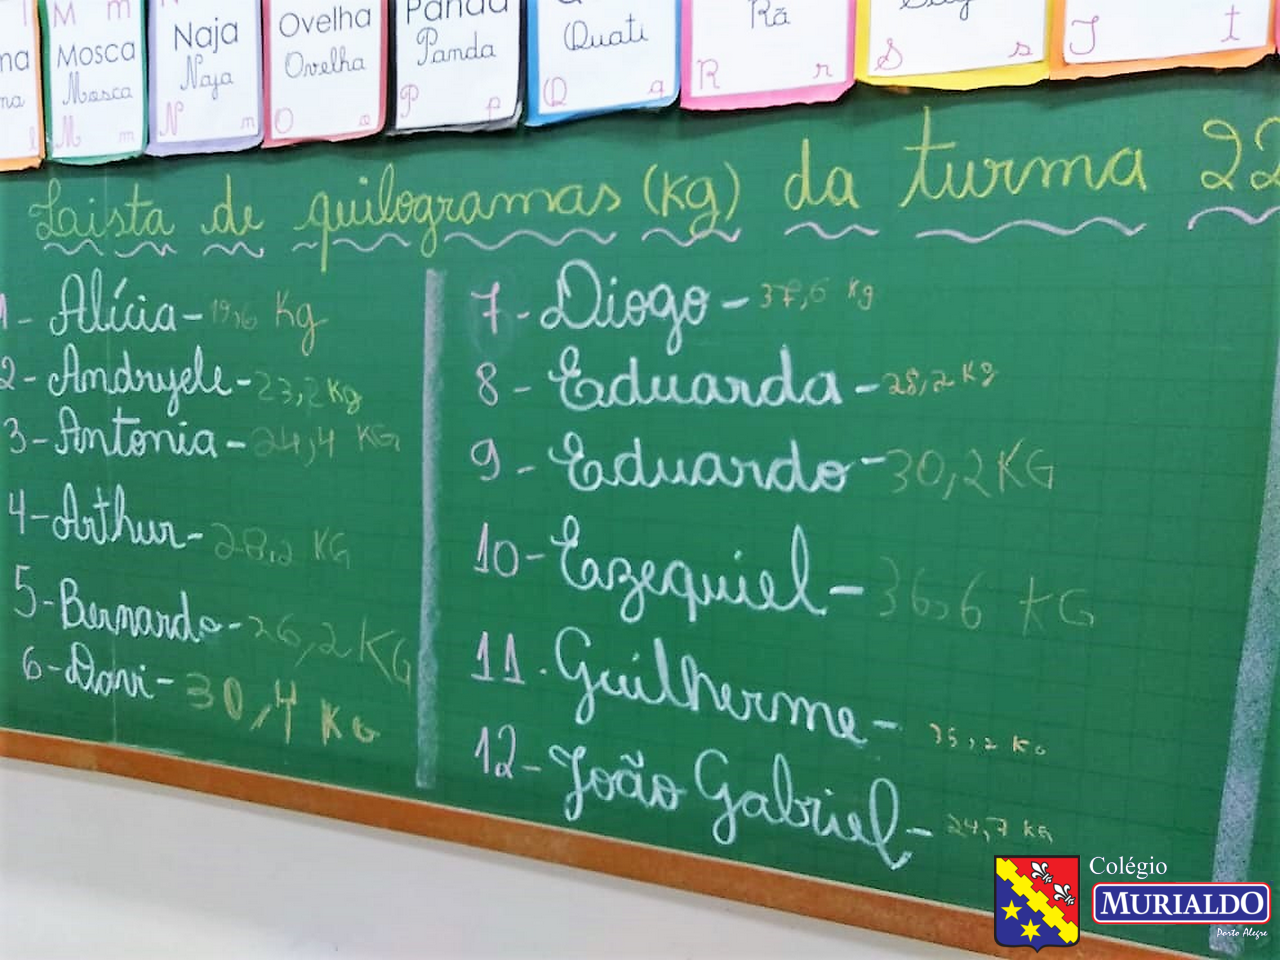 M m
Mosca
Mosca
M m
Naja
Naja
N n
Ovelha
Ovelha
O o
Panda
Panda
P p
Quati
Q q
Rã
R r
S s
T t
Lista de quilogramas (kg) da turma 22
1- Alícia - 19,6 Kg
2- Andryele - 23,2 kg
3- Antonia - 24,4 KG
4- Arthur - 28,2 KG
5- Bernardo - 26,2 KG
6- Davi - 30,4 KG
7- Diogo - 37,6 kg
8- Eduarda - 28,2 kg
9- Eduardo - 30,2 KG
10- Ezequiel - 36,6 KG
11. Guilherme - 35,2 KG
12- João Gabriel - 24,7 KG
Colégio
MURIALDO
Porto Alegre